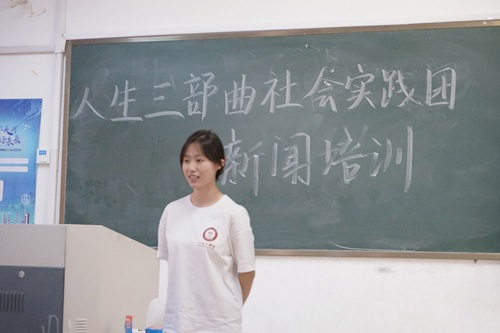 人生三部曲社会实践团
新闻培训